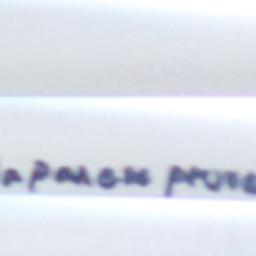 Japanese prove